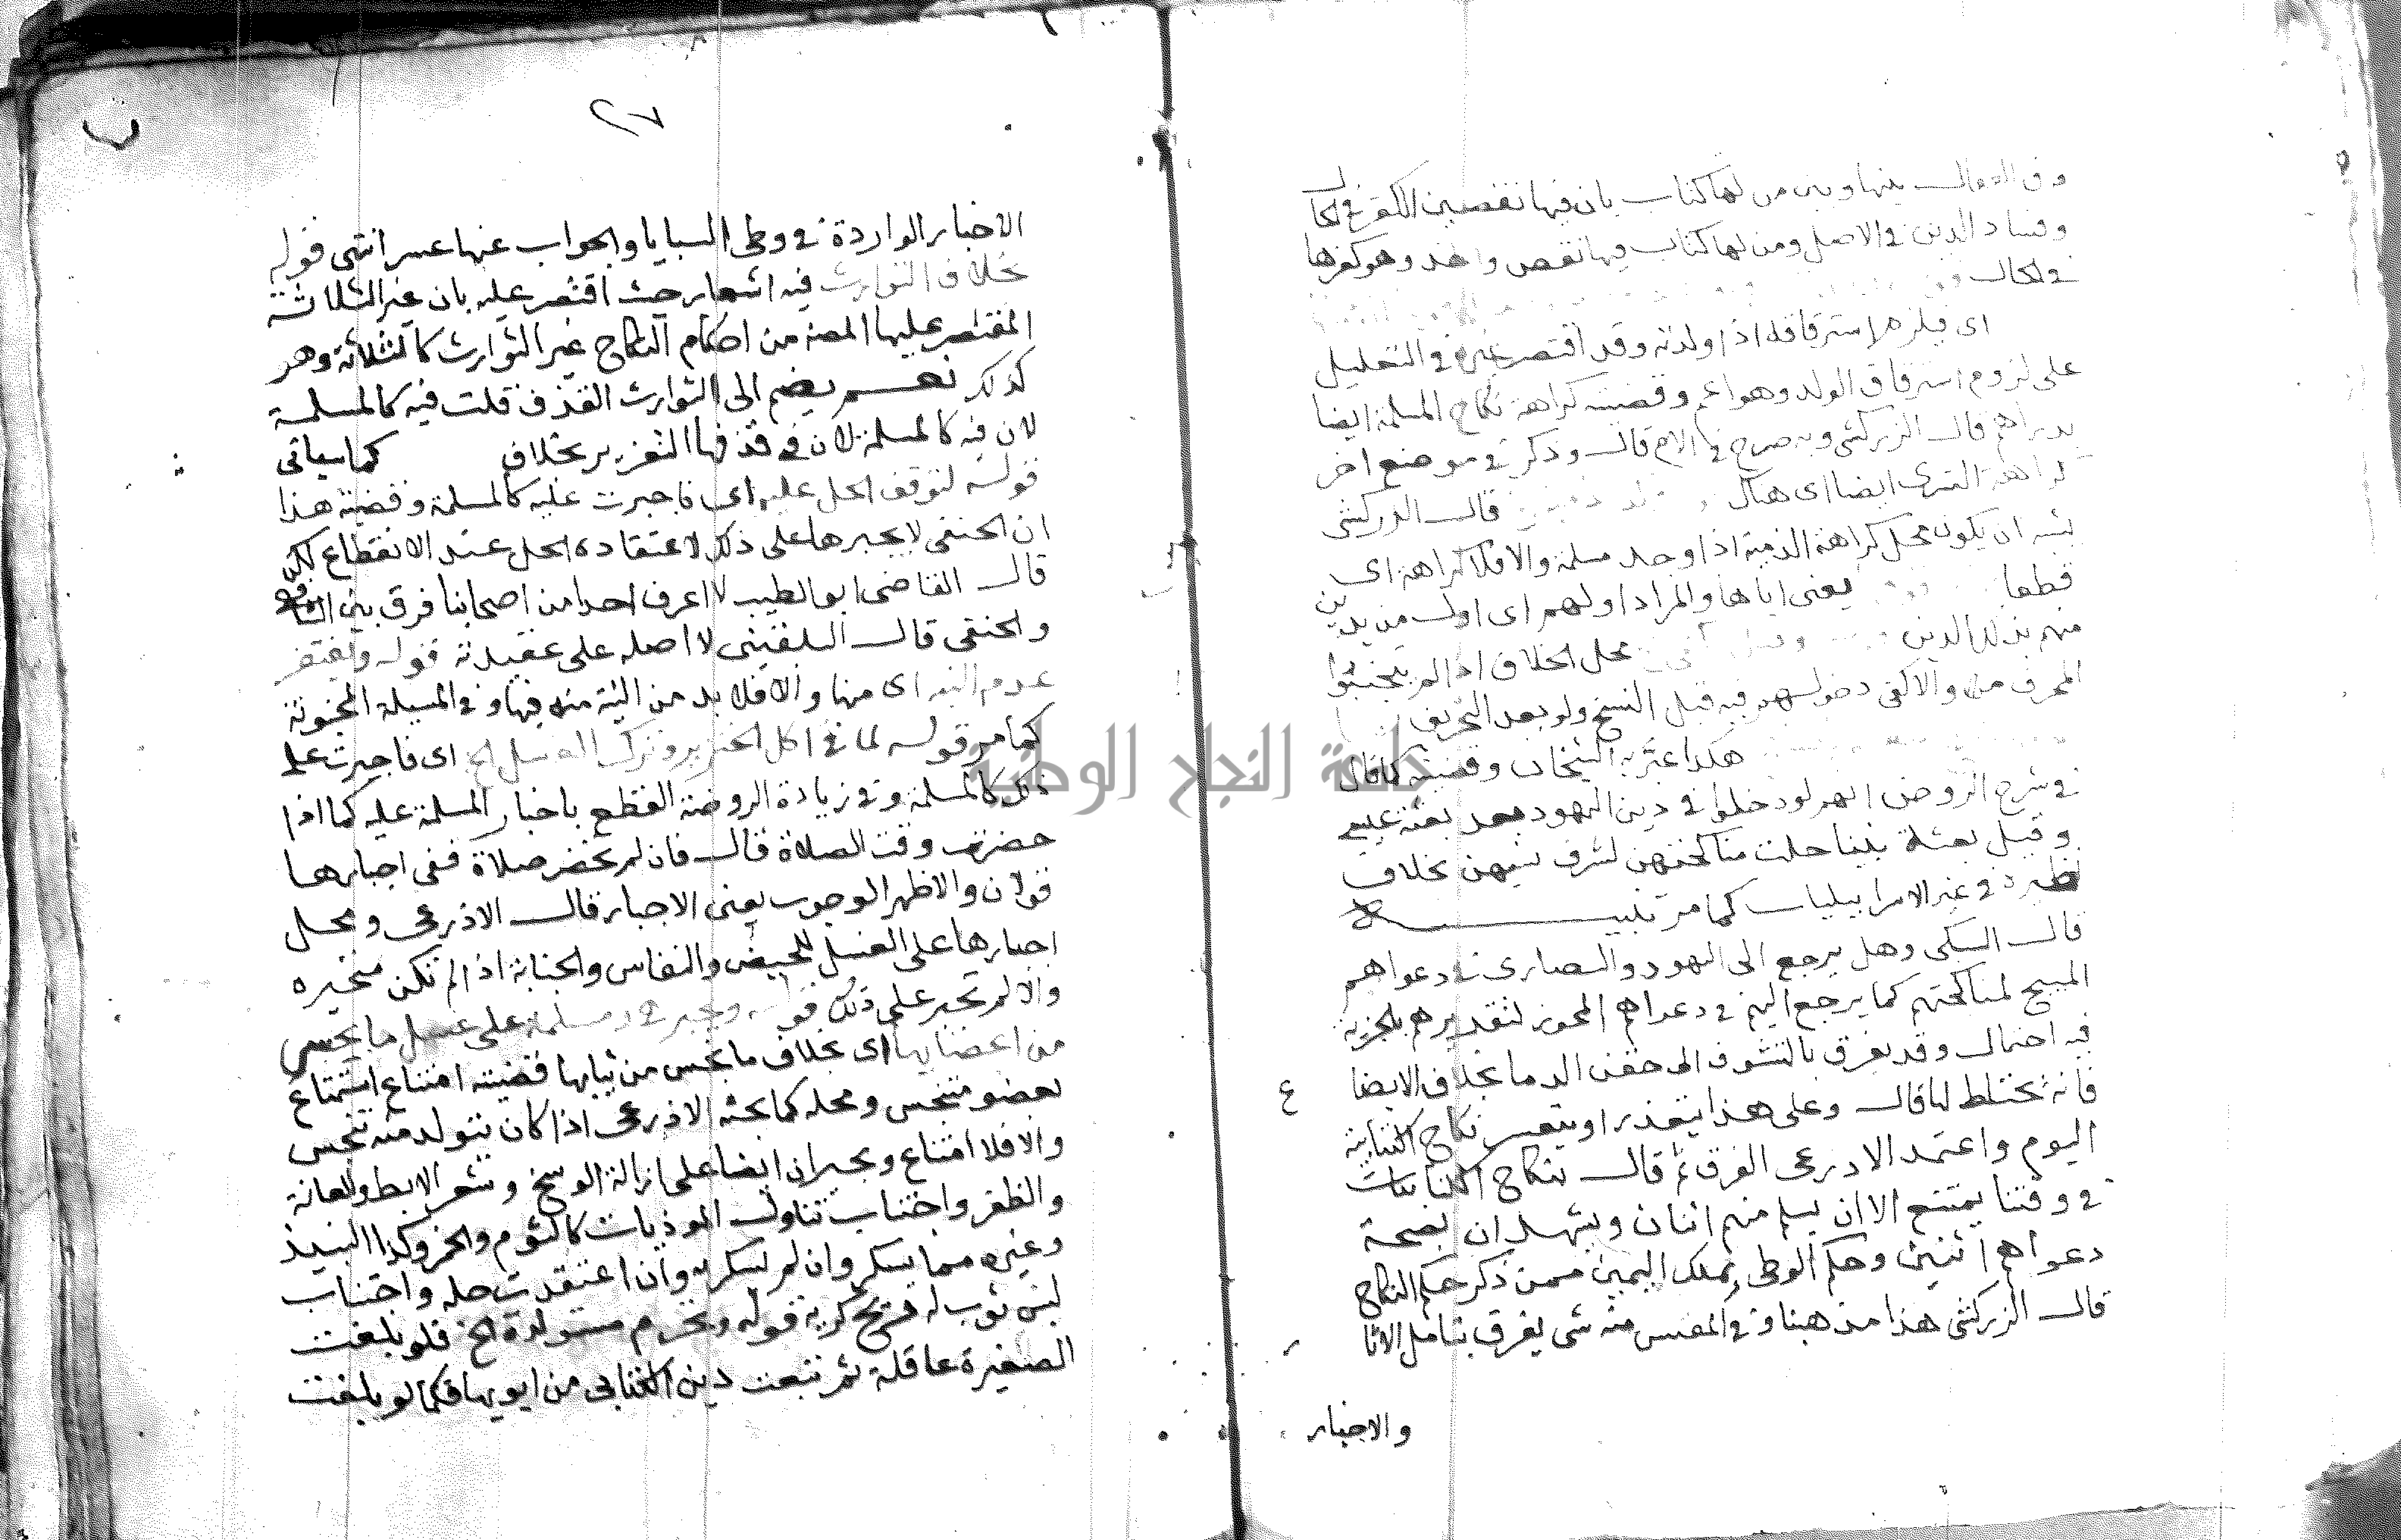 وفرق القفال بينها وبين من لها كتاب بان فيها نقصين الكفر في الحال
وفساد الدين في الاصل ومن لها كتاب فيها نقص واحد وهو كفرها
في الحال
اى فيلزم استرقاقه اذا ولدته وقد اقتصر غيره في التعليل
على لزوم استرقاق الولد وهو اعم وقضيته كراهة نكاح المسلمة ايضا
بدراهم قال الزركشى وبه صرح في الام قال وذكر في موضع اخر
كراهة التسرى ايضا اى هناك قال الزركشى
يشبه ان يكون محل كراهة الذمية اذا وجد مسلمة والا فلا كراهة اى
قطعا يعنى اباها والمراد اولهم اى اول من تدين
منهم بذلك الدين محل الخلاف اذا لم يتجنبوا
المحرف منه والا كفى دخولهم فيه قبل النسخ ولو بعد التحريف
هكذا عبر به الشيخان وقضيته كما قال
في شرح الروض انهم لو دخلوا في دين اليهود بعد بعثة عيسى
وقبل بعثة نبينا حلت مناكحتهن لشرف نسبهن بخلاف
نظيره في غير الاسرابيليات كما مر تنبيـــه
قال السبكى وهل يرجع الى اليهود والنصارى في دعواهم
المبيح لمناكحتهم كما يرجع اليهم في دعواهم المجوز لتقديرهم بالجزية
فيه احتمال وقد يفرق بالتشوف الى حقن الدما بخلاف الابضا
ع
فانه يحتاط لها قال وعلى هذا يتعذر او يتعسر نكاح الكتابية
اليوم واعتمد الاذرعى الفرق ثم قال نكاح الكتابيات
في وقتنا يمتنع الا ان يسلم منهم اثنان ويشهدان بصحة
دعواهم اثنين وحكم الوطى بملك اليمين ممن ذكر حكم النكاح
قال الزركشى هذا مذهبنا وفي النفس منه شى يعرف بتامل الاثا
ر
والاخبار
٢٧
الاخبار الواردة في وطى السبايا والجواب عنها عسر انتهى قوله
بخلاف التوارث فيه اشعار حيث اقتصر عليه بان غير الثلاثة
المقتصر عليها المصنف من احكام النكاح غير التوارث كالثلاثة وهو
كذلك نعـــم يضم الى التوارث القذف قلت فيه كالمسلمة
لان فيه كالمسلمة لان في قذفها التعزير بخلاف كما سياتى
قولـه لتوقف الحل عليه اى فاجبرت عليه كالمسلمة وقضية هذا
ان الحنفى لا يجبرها على ذلك لاعتقاده الحل عند الانقطاع لكن
قال القاضى ابو الطيب لا اعرف احدا من اصحابنا فرق بين الشافعى
والحنفى قال البلقينى لا اصله على عقيدته قوله ويغتفر
عدم النية اى منها والا فلا بد من النية منه فيها وفي المسيلة المجنونة
كما مر قولـه لما في اكل الخنزير وترك الغسل الخ اى فاجبرت على
ذلك كالمسلمة وفي زيادة الروضة القطع باجبار المسلمة عليه كما اذا
حضرت وقت الصلاة قال فان لم تحضر صلاة ففى اجبارها
قولان والاظهر الوجوب يعنى الاجبار قال الاذرعى ومحل
اجبارها على الغسل للحيض والنفاس والجنابة اذا لم تكن متحيره
والا لم تجبر على ذلك قوله وتجبر هى ومسلمة على غسل ما نجس
من اعضايها اى بخلاف ما نجس من ثيابها قضيته امتناع استمتاع
بعضو متنجس ومحله كما بحثه الاذرعى اذا كان يتولد منه تنجس
والا فلا امتناع ويجبران ايضا على ازالة الوسخ وشعر الابط والعانة
والظفر واجتناب تناول الموذيات كالثوم والخمر وكذا النبيذ
وغيره مما يسكر وان لم يسكر به وان اعتقدت حله واجتناب
لبس ثوب له ريح كريه قوله وتحرم متولدة الخ فلو بلغت
الصغيرة عاقلة ثم تبعت دين الكتابى من ابويها فكما لو بلغت
حلقة النجاح الوطنية